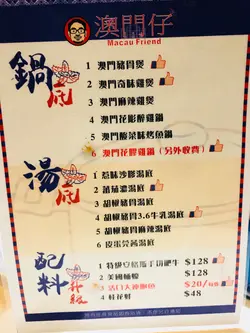 澳門仔
Macau Friend
鍋底
1 澳門豬骨煲
2 澳門奇味雞煲
3 澳門麻辣雞煲
4 澳門花彫醉雞鍋
5 澳門酸菜味烤魚鍋
6 澳門花膠雞鍋(另外收費)
湯底
1 惹味沙嗲湯底
2 蕃茄濃湯底
3 胡椒豬骨湯底
4 胡椒豬骨3.6牛乳湯底
5 麻辣湯底
6 皮蛋芫茜湯底
配料升級
1 特級安格斯手切肥牛 $128
2 美國桶蠔 $128
3 $20/
4 桂花蚌 $48